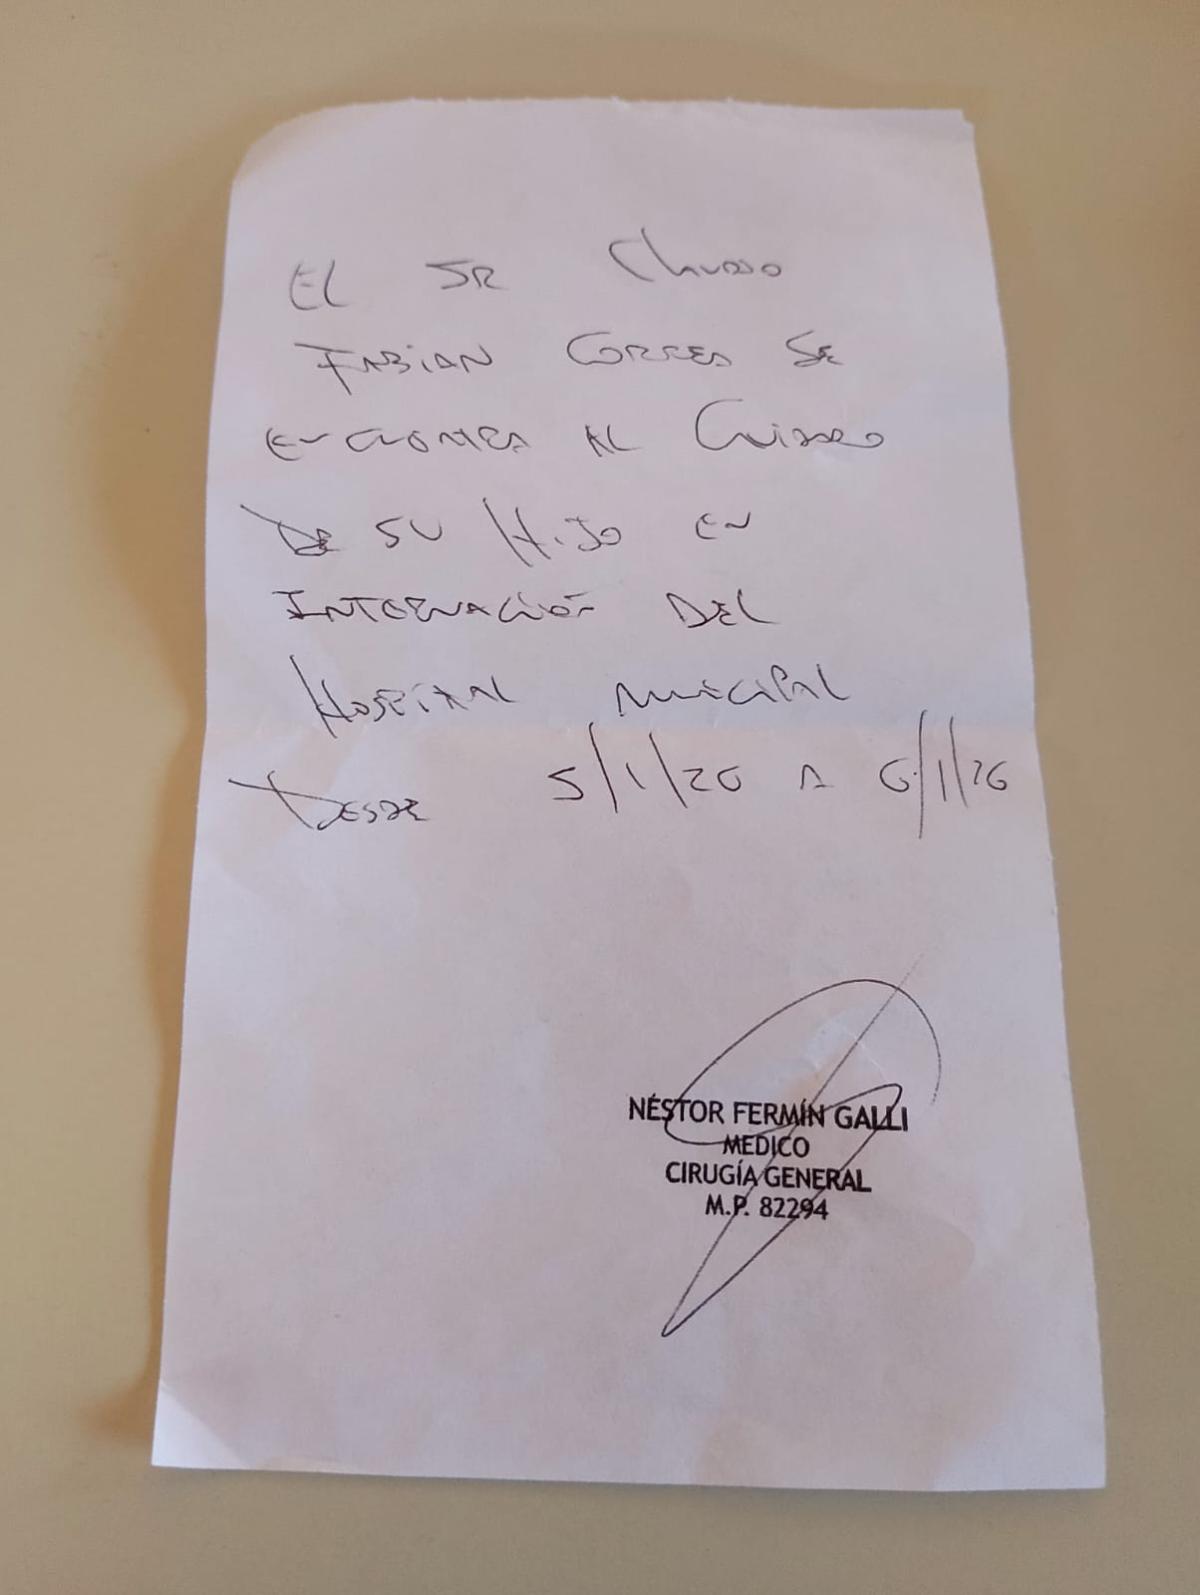 El SR Claudio
FABIAN CORREA SE
ENCUENTRA AL Cuidado
DE SU HIJO EN
INTERNACIÓN DEL
HOSPITAL MUNICIPAL
DESDE 5/1/26 A 6/1/26
NÉSTOR FERMÍN GALLI
MEDICO
CIRUGÍA GENERAL
M.P. 82294